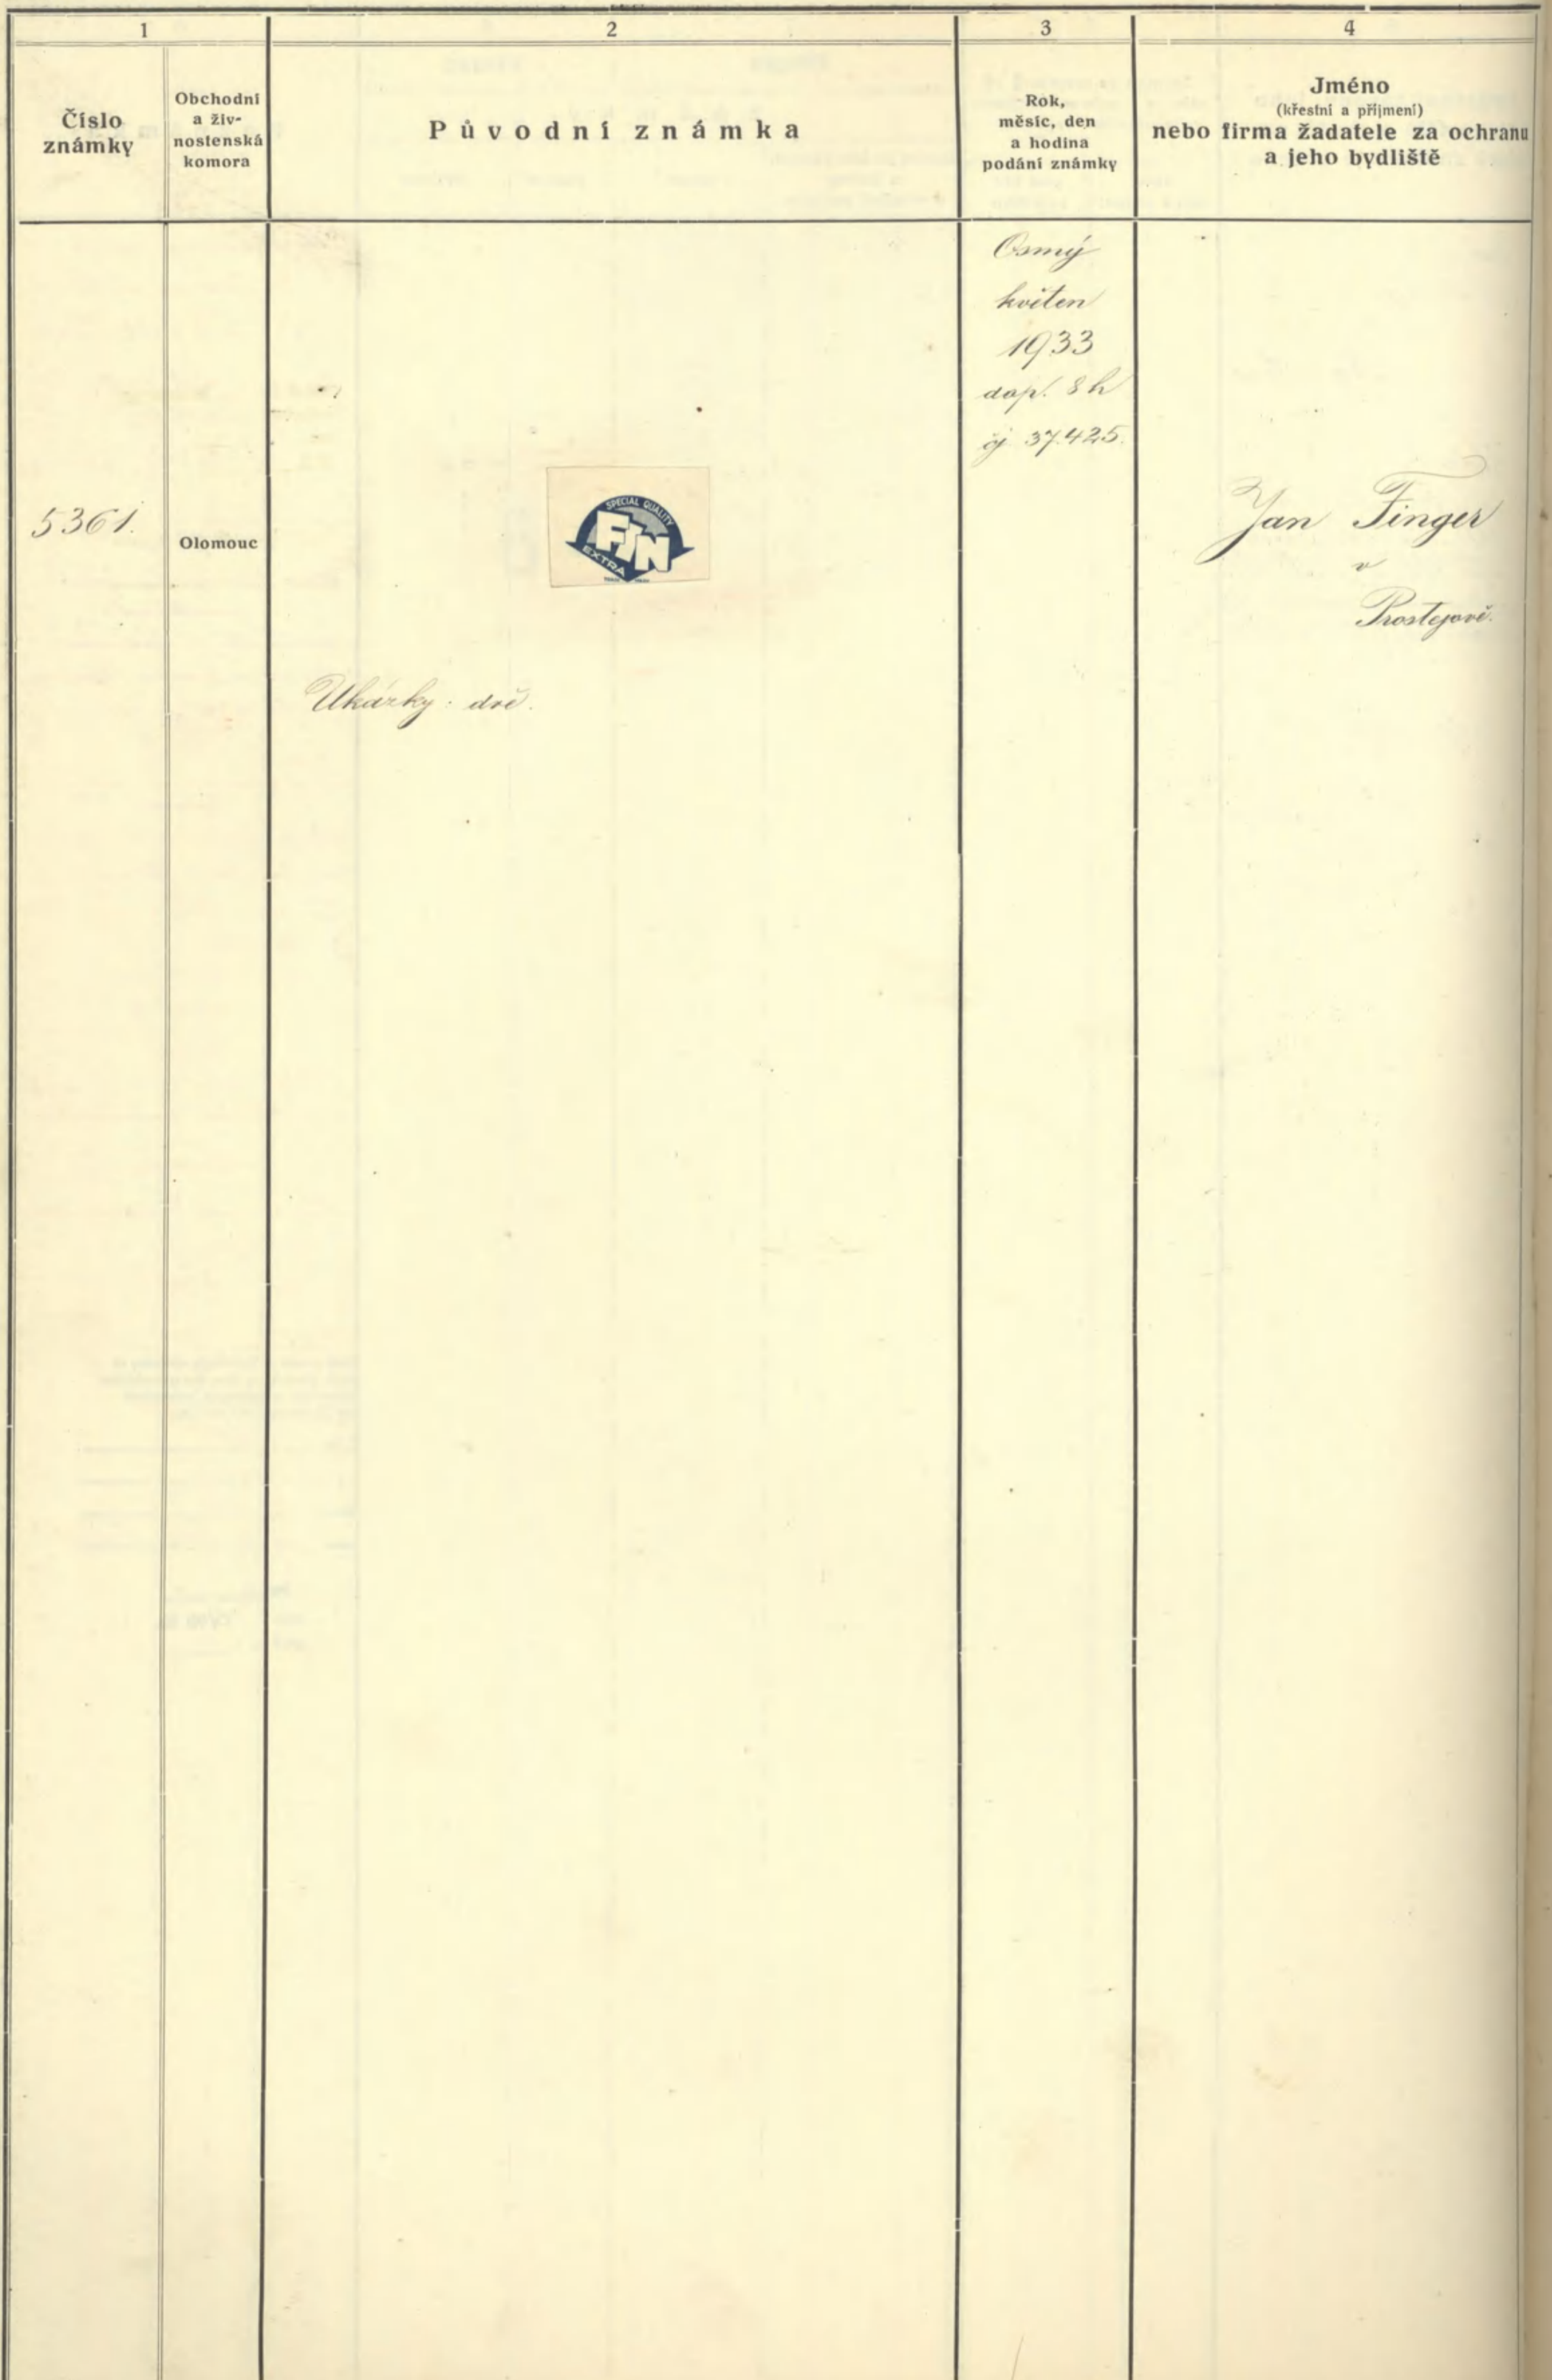 1
2
3
4
Číslo
známky
Obchodní
a živ-
nostenská
komora
Původní známka
Rok,
měsíc, den
a hodina
podání známky
Jméno
(křestní a příjmení)
nebo firma žadatele za ochranu
a jeho bydliště
5361.
Olomouc
SPECIAL QUALITY
FJN
EXTRA
Ukázky: dvě.
Osmý
květen
1933
dop. 8 h
čj. 37.425.
Jan Finger
v
Prostějově.